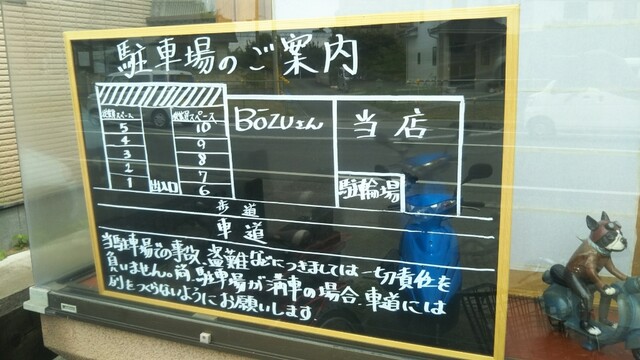 駐車場のご案内
従業員スペース
従業員スペース
5
10
BOZUさん
当店
4
9
3
8
2
7
駐輪場
1
出入口
6
歩道
車道
当駐車場での事故、盗難などにつきましては一切責任を
負いません。尚、駐車場が満車の場合、車道には
列をつくらないようにお願いします。